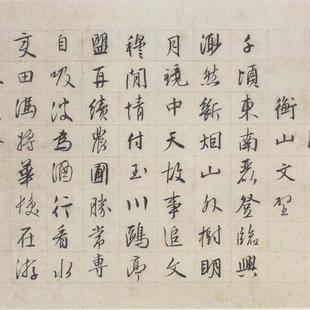 衡山文璧
千頃東南麗登臨興
渺然斷烟山外樹明
月鏡中天故事追文
穆閒情付玉川鷗亭
盟再續農圃勝常專
自吸波為酒行看水
田馮將華在游